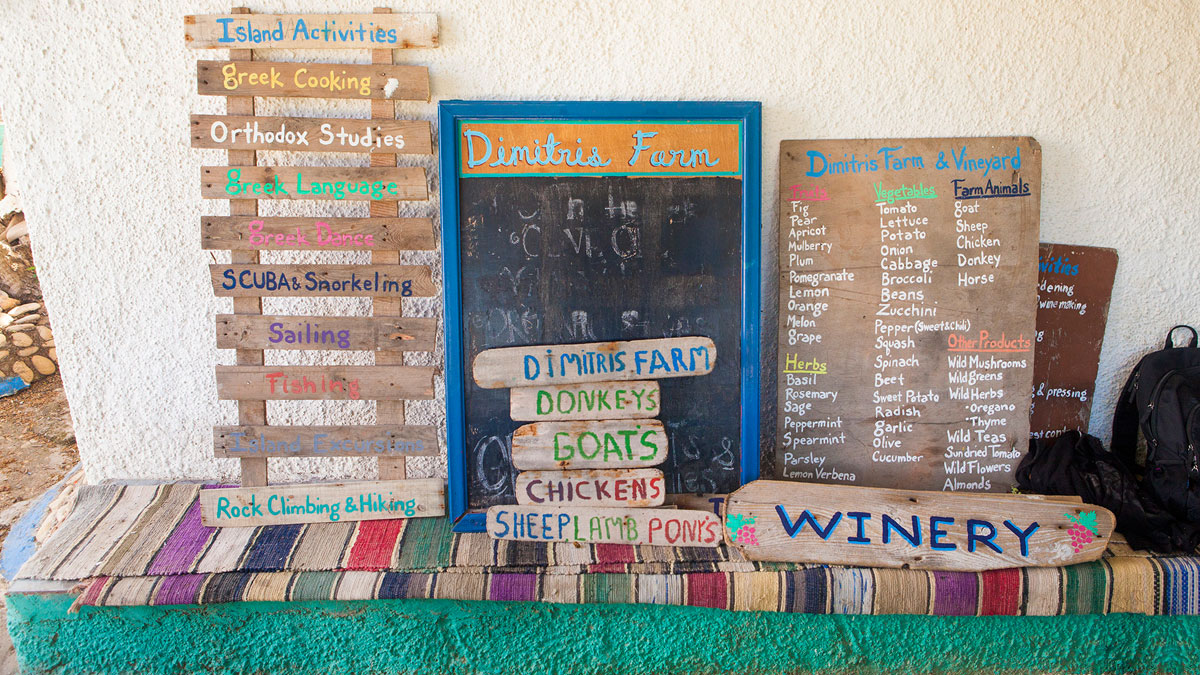 Island Activities
greek Cooking
Orthodox Studies
greek Language
greek Dance
SCUBA & Snorkeling
Sailing
Fishing
Island Excursions
Rock Climbing & Hiking
Dimitris Farm
DIMITRIS FARM
DONKEYS
GOATS
CHICKENS
SHEEP LAMB PONY'S
Dimitris Farm & Vineyard
Fruits
Fig
Pear
Apricot
Mulberry
Plum
Pomegranate
Lemon
Orange
Melon
grape
Herbs
Basil
Rosemary
Sage
Peppermint
Spearmint
Parsley
Lemon Verbena
Vegetables
Tomato
Lettuce
Potato
Onion
Cabbage
Broccoli
Beans
Zucchini
Pepper (Sweet & Chili)
Squash
Spinach
Beet
Sweet Potato
Radish
garlic
Olive
Cucumber
Farm Animals
goat
Sheep
Chicken
Donkey
Horse
Other Products
Wild Mushrooms
Wild greens
Wild Herbs
-Oregano
-Thyme
Wild Teas
Sundried Tomato
Wild Flowers
Almonds
WINERY
& pressing